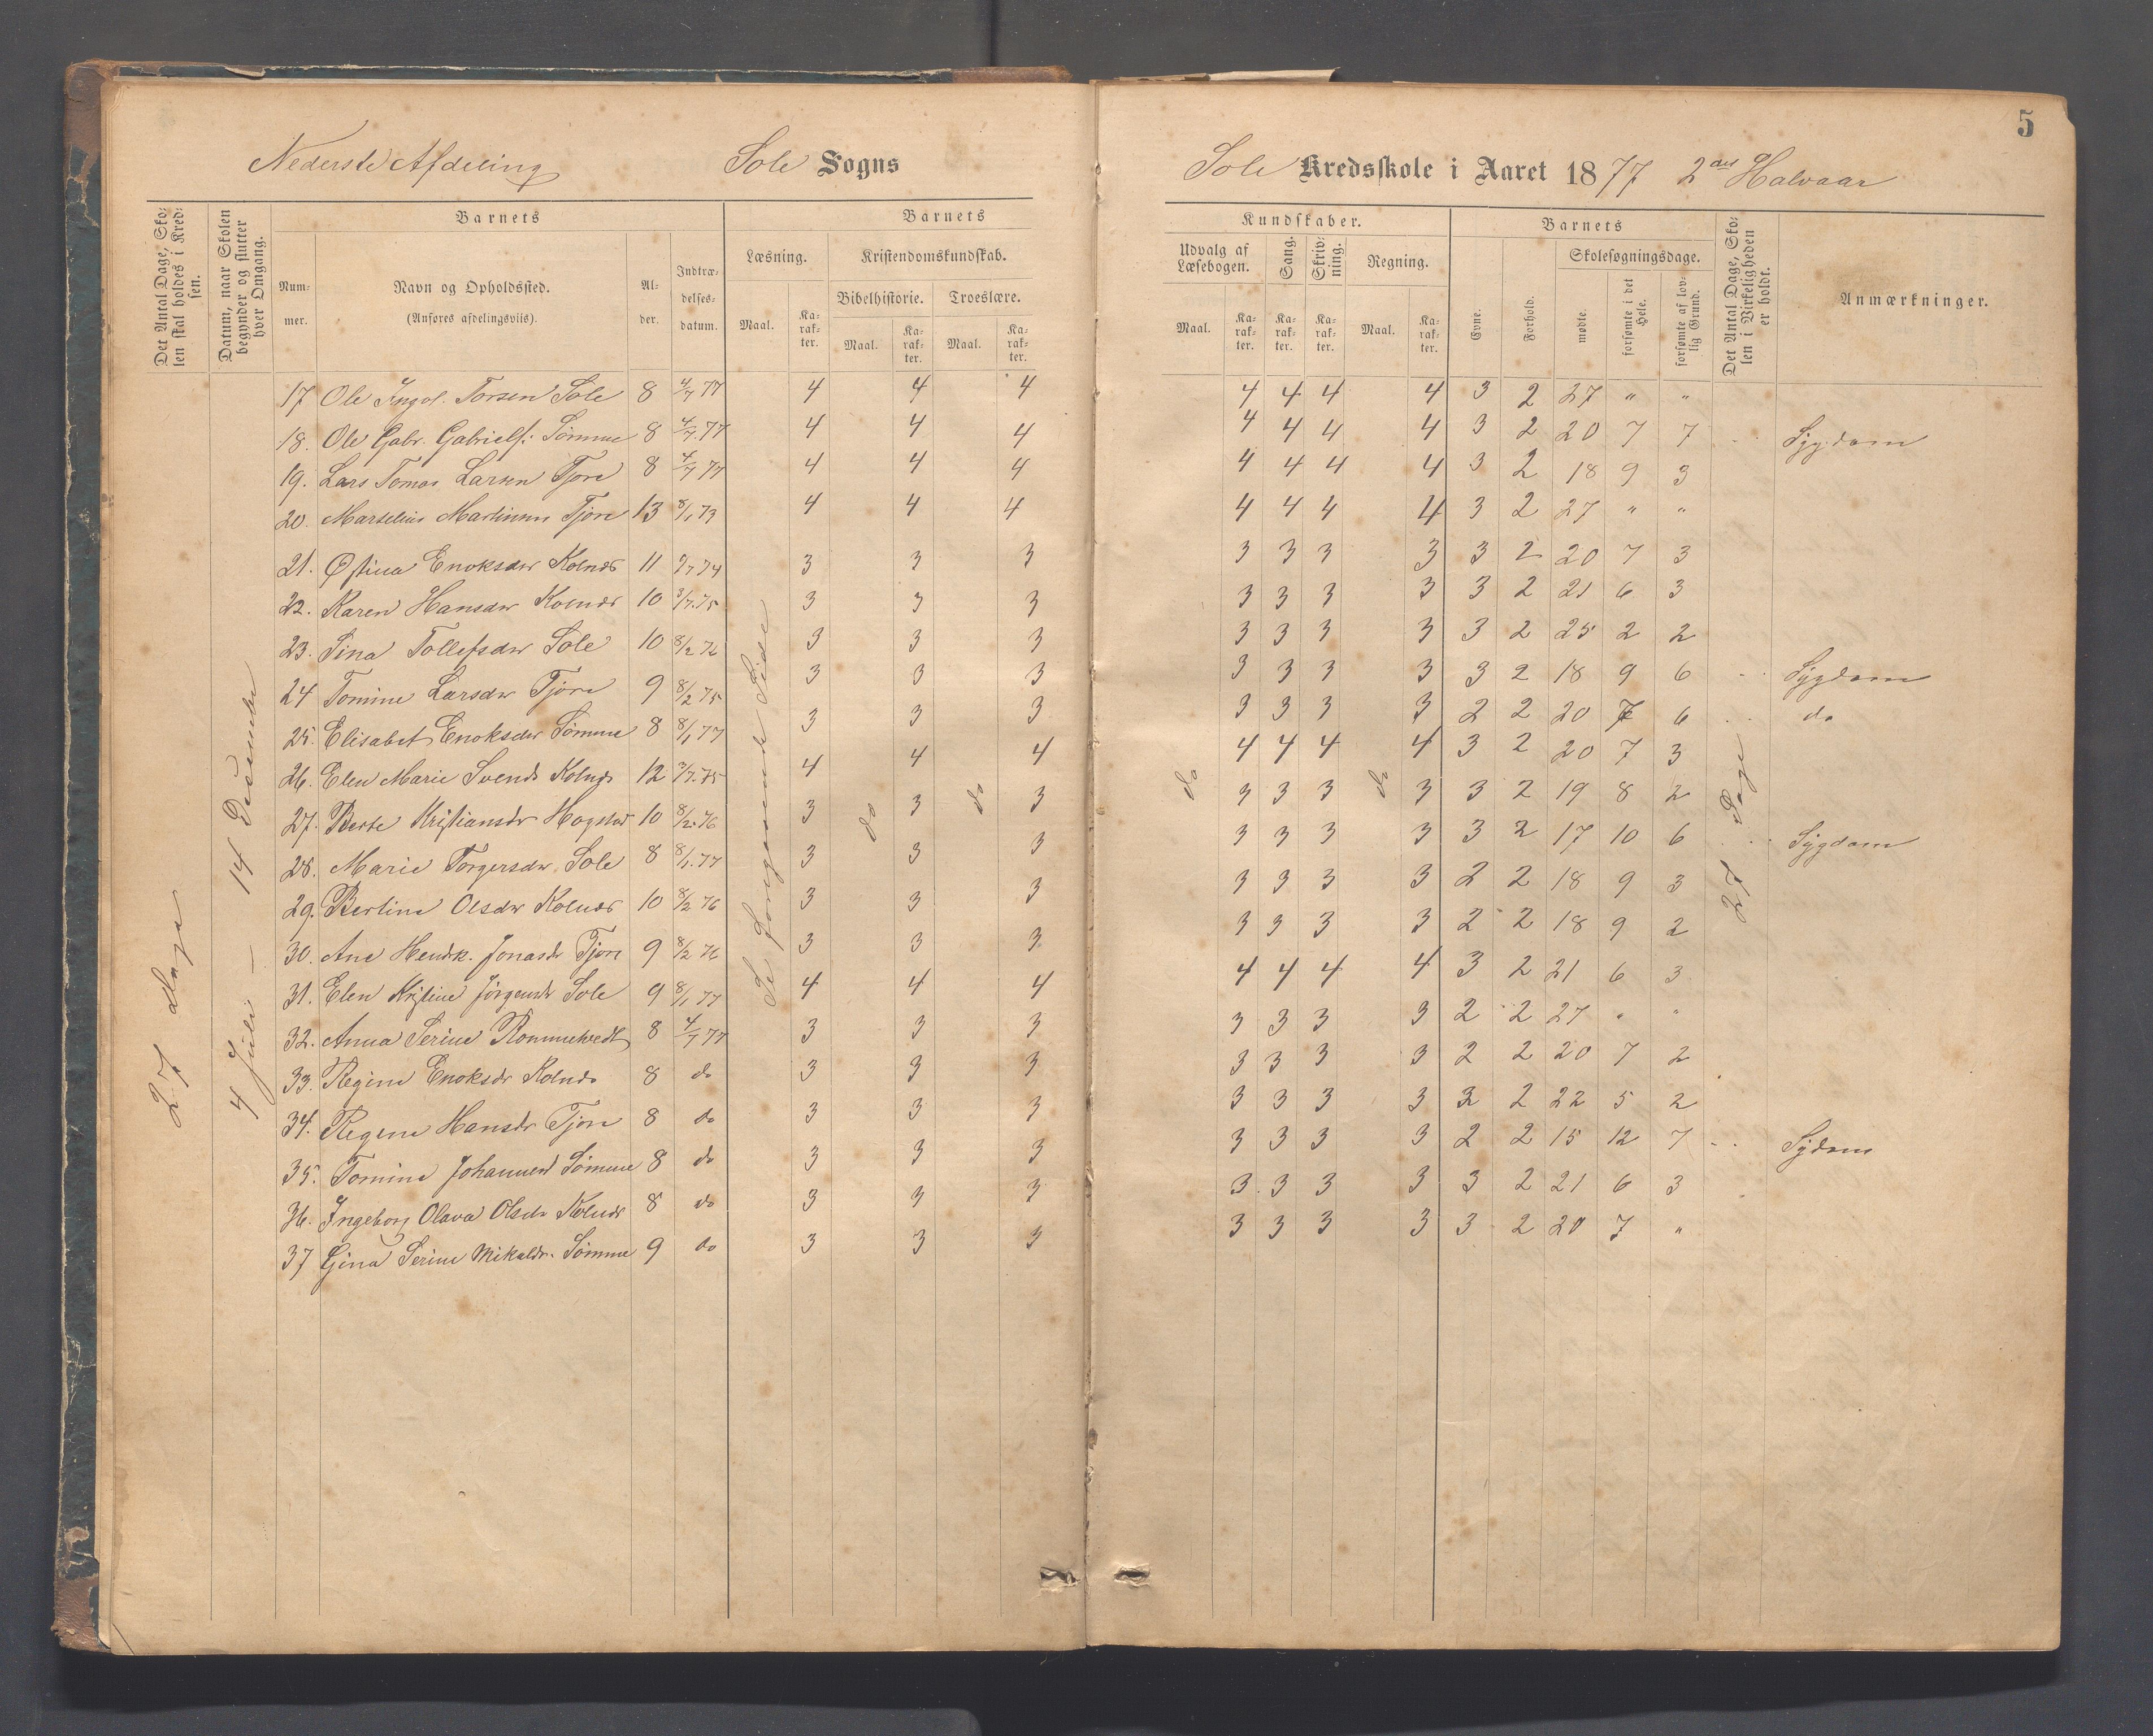 5
Nederste Afdeling Sole Sogns
Sole Kredsskole i Aaret 1877 2det Halvaar
Det Antal Dage, Skolen skal holdes i Kredsen.
Datum, naar Skolen begynder og slutter hver Omgang.
Barnets
Num-mer.
Navn og Opholdssted.
(Anføres afdelingsviis).
Al-der.
Indtræ-delses-datum.
Barnets
Læsning.
Kristendomskundskab.
Bibelhistorie. Troeslære.
Maal. Ka-rak-ter. Maal. Ka-rak-ter. Maal. Ka-rak-ter.
Kundskaber.
Udvalg af Læsebogen. Sang. Skriv-ning. Regning.
Maal. Ka-rak-ter. Ka-rak-ter. Ka-rak-ter. Maal. Ka-rak-ter.
Barnets
Evne. Forhold.
Skolesøgningsdage.
mødte. forsømte i det Hele. forsømte af lov-lig Grund.
Det Antal Dage, Sko-len i Virkeligheden er holdt.
Anmærkninger.
27 dage
4 Juli - 14 December
Se foregaaende Side
do do do do
27 Dage
17 Ole Ingv. Torsen Sole 8 4/7 77 4 4 4 4 4 4 4 3 2 27 " "
18. Ole Gabr. Gabriels: Sømme 8 4/7.77 4 4 4 4 4 4 4 3 2 20 7 7 Sygdom
19. Lars Tomas Larsen Tjore 8 4/7 77 4 4 4 4 4 4 4 3 2 18 9 3
20. Marselius Martinsen Tjore 13 8/1 73 4 4 4 4 4 4 4 3 2 27 " "
21. Østina Enoksdr Kolnes 11 74 3 3 3 3 3 3 3 3 2 20 7 3
22. Karen Hansdr Kolnes 10 3/7.75 3 3 3 3 3 3 3 3 2 21 6 3
23. Sina Tollefsdr Sole 10 8/2 76 3 3 3 3 3 3 3 3 2 25 2 2
24 Tomine Larsdr Tjore 9 8/2 75 3 3 3 3 3 3 3 3 2 18 9 6 Sygdom
25. Elisabet Enoksdr Sømme 8 8/1 77 3 3 3 3 3 3 3 2 2 20 7 6 do
26. Elen Marie Svends Kolnes 12 3/7.75 4 4 4 4 4 4 4 3 2 20 7 3
27. Berte Kristiansdr Hogstad 10 8/2.76 3 3 3 3 3 3 3 3 2 19 8 2
28. Marie Torgersdr Sole 8 8/1.77 3 3 3 3 3 3 3 3 2 17 10 6 Sygdom
29. Bertine Olsdr Kolnes 10 8/2 76 3 3 3 3 3 3 3 2 2 18 9 3
30. Ane Hendk. Jonasdr Tjore 9 8/2 76 3 3 3 3 3 3 3 2 2 18 9 2
31. Elen Kristine Jørgensdr Sole 9 8/1 77 4 4 4 4 4 4 4 3 2 21 6 3
32. Anna Serine Rommetvedt 8 4/7 77 3 3 3 3 3 3 3 2 2 27 " "
33. Regine Enoksdr Kolnes 8 do 3 3 3 3 3 3 3 2 2 20 7 2
34. Regine Hansdr Tjore 8 do 3 3 3 3 3 3 3 2 2 22 5 2
35. Tomine Johannesd Sømme 8 do 3 3 3 3 3 3 3 2 2 15 12 7 Sydom
36. Ingeborg Olava Olsdr Kolnes 8 do 3 3 3 3 3 3 3 3 2 21 6 3
37 Gina Serine Mikaldr. Sømme 9 do 3 3 3 3 3 3 3 3 2 20 7 "